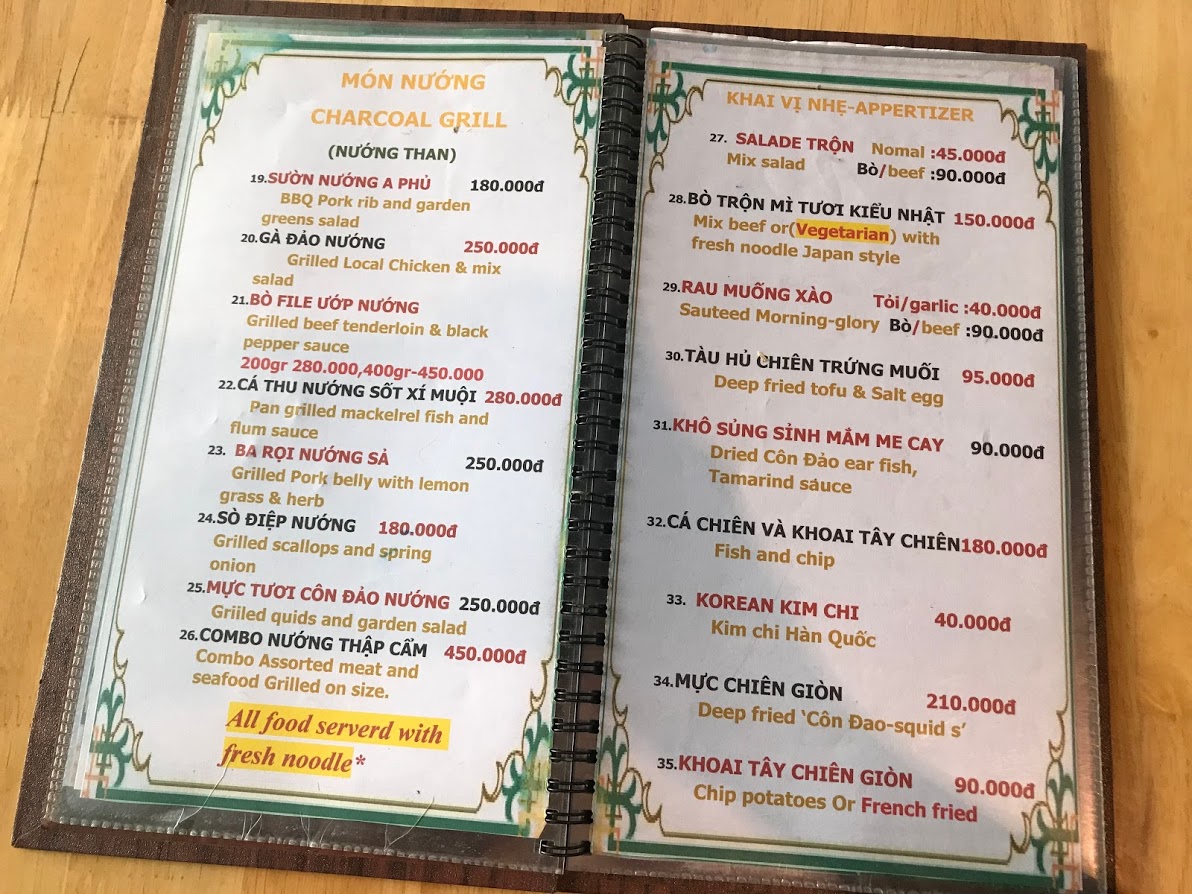 MÓN NƯỚNG
CHARCOAL GRILL
(NƯỚNG THAN)
19.SƯỜN NƯỚNG A PHỦ 180.000đ
BBQ Pork rib and garden
greens salad
20.GÀ ĐẢO NƯỚNG 250.000đ
Grilled Local Chicken & mix
salad
21.BÒ FILE ƯỚP NƯỚNG
Grilled beef tenderloin & black
pepper sauce
200gr 280.000,400gr-450.000
22.CÁ THU NƯỚNG SỐT XÍ MUỘI 280.000đ
Pan grilled mackelrel fish and
flum sauce
23. BA RỌI NƯỚNG SẢ 250.000đ
Grilled Pork belly with lemon
grass & herb
24.SÒ ĐIỆP NƯỚNG 180.000đ
Grilled scallops and spring
onion
25.MỰC TƯƠI CÔN ĐẢO NƯỚNG 250.000đ
Griiled quids and garden salad
26.COMBO NƯỚNG THẬP CẨM 450.000đ
Combo Assorted meat and
seafood Grilled on size.
All food serverd with
fresh noodle*
KHAI VỊ NHẸ-APPERTIZER
27. SALADE TRỘN Nomal :45.000đ
Mix salad Bò/beef :90.000đ
28.BÒ TRỘN MÌ TƯƠI KIỂU NHẬT 150.000đ
Mix beef or(Vegetarian) with
fresh noodle Japan style
29.RAU MUỐNG XÀO Tỏi/garlic :40.000đ
Sauteed Morning-glory Bò/beef :90.000đ
30.TÀU HỦ CHIÊN TRỨNG MUỐI 95.000đ
Deep fried tofu & Salt egg
31.KHÔ SỦNG SỈNH MẮM ME CAY 90.000đ
Dried Côn Đảo ear fish,
Tamarind sauce
32.CÁ CHIÊN VÀ KHOAI TÂY CHIÊN180.000đ
Fish and chip
33. KOREAN KIM CHI 40.000đ
Kim chi Hàn Quốc
34.MỰC CHIÊN GIÒN 210.000đ
Deep fried ‘Côn Đao-squid s’
35.KHOAI TÂY CHIÊN GIÒN 90.000đ
Chip potatoes Or French fried